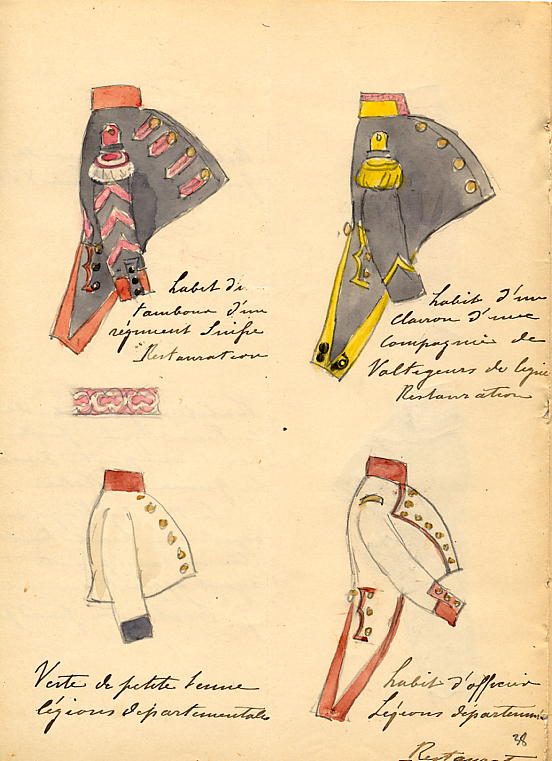 habit de
tambour d'un
régiment Suisse
Restauration
habit d'un
clairon d'une
compagnie de
Voltigeurs de ligne
Restauration
Veste de petite tenue
légions départementales
habit d'officier
Légions départem
38
Restaurat